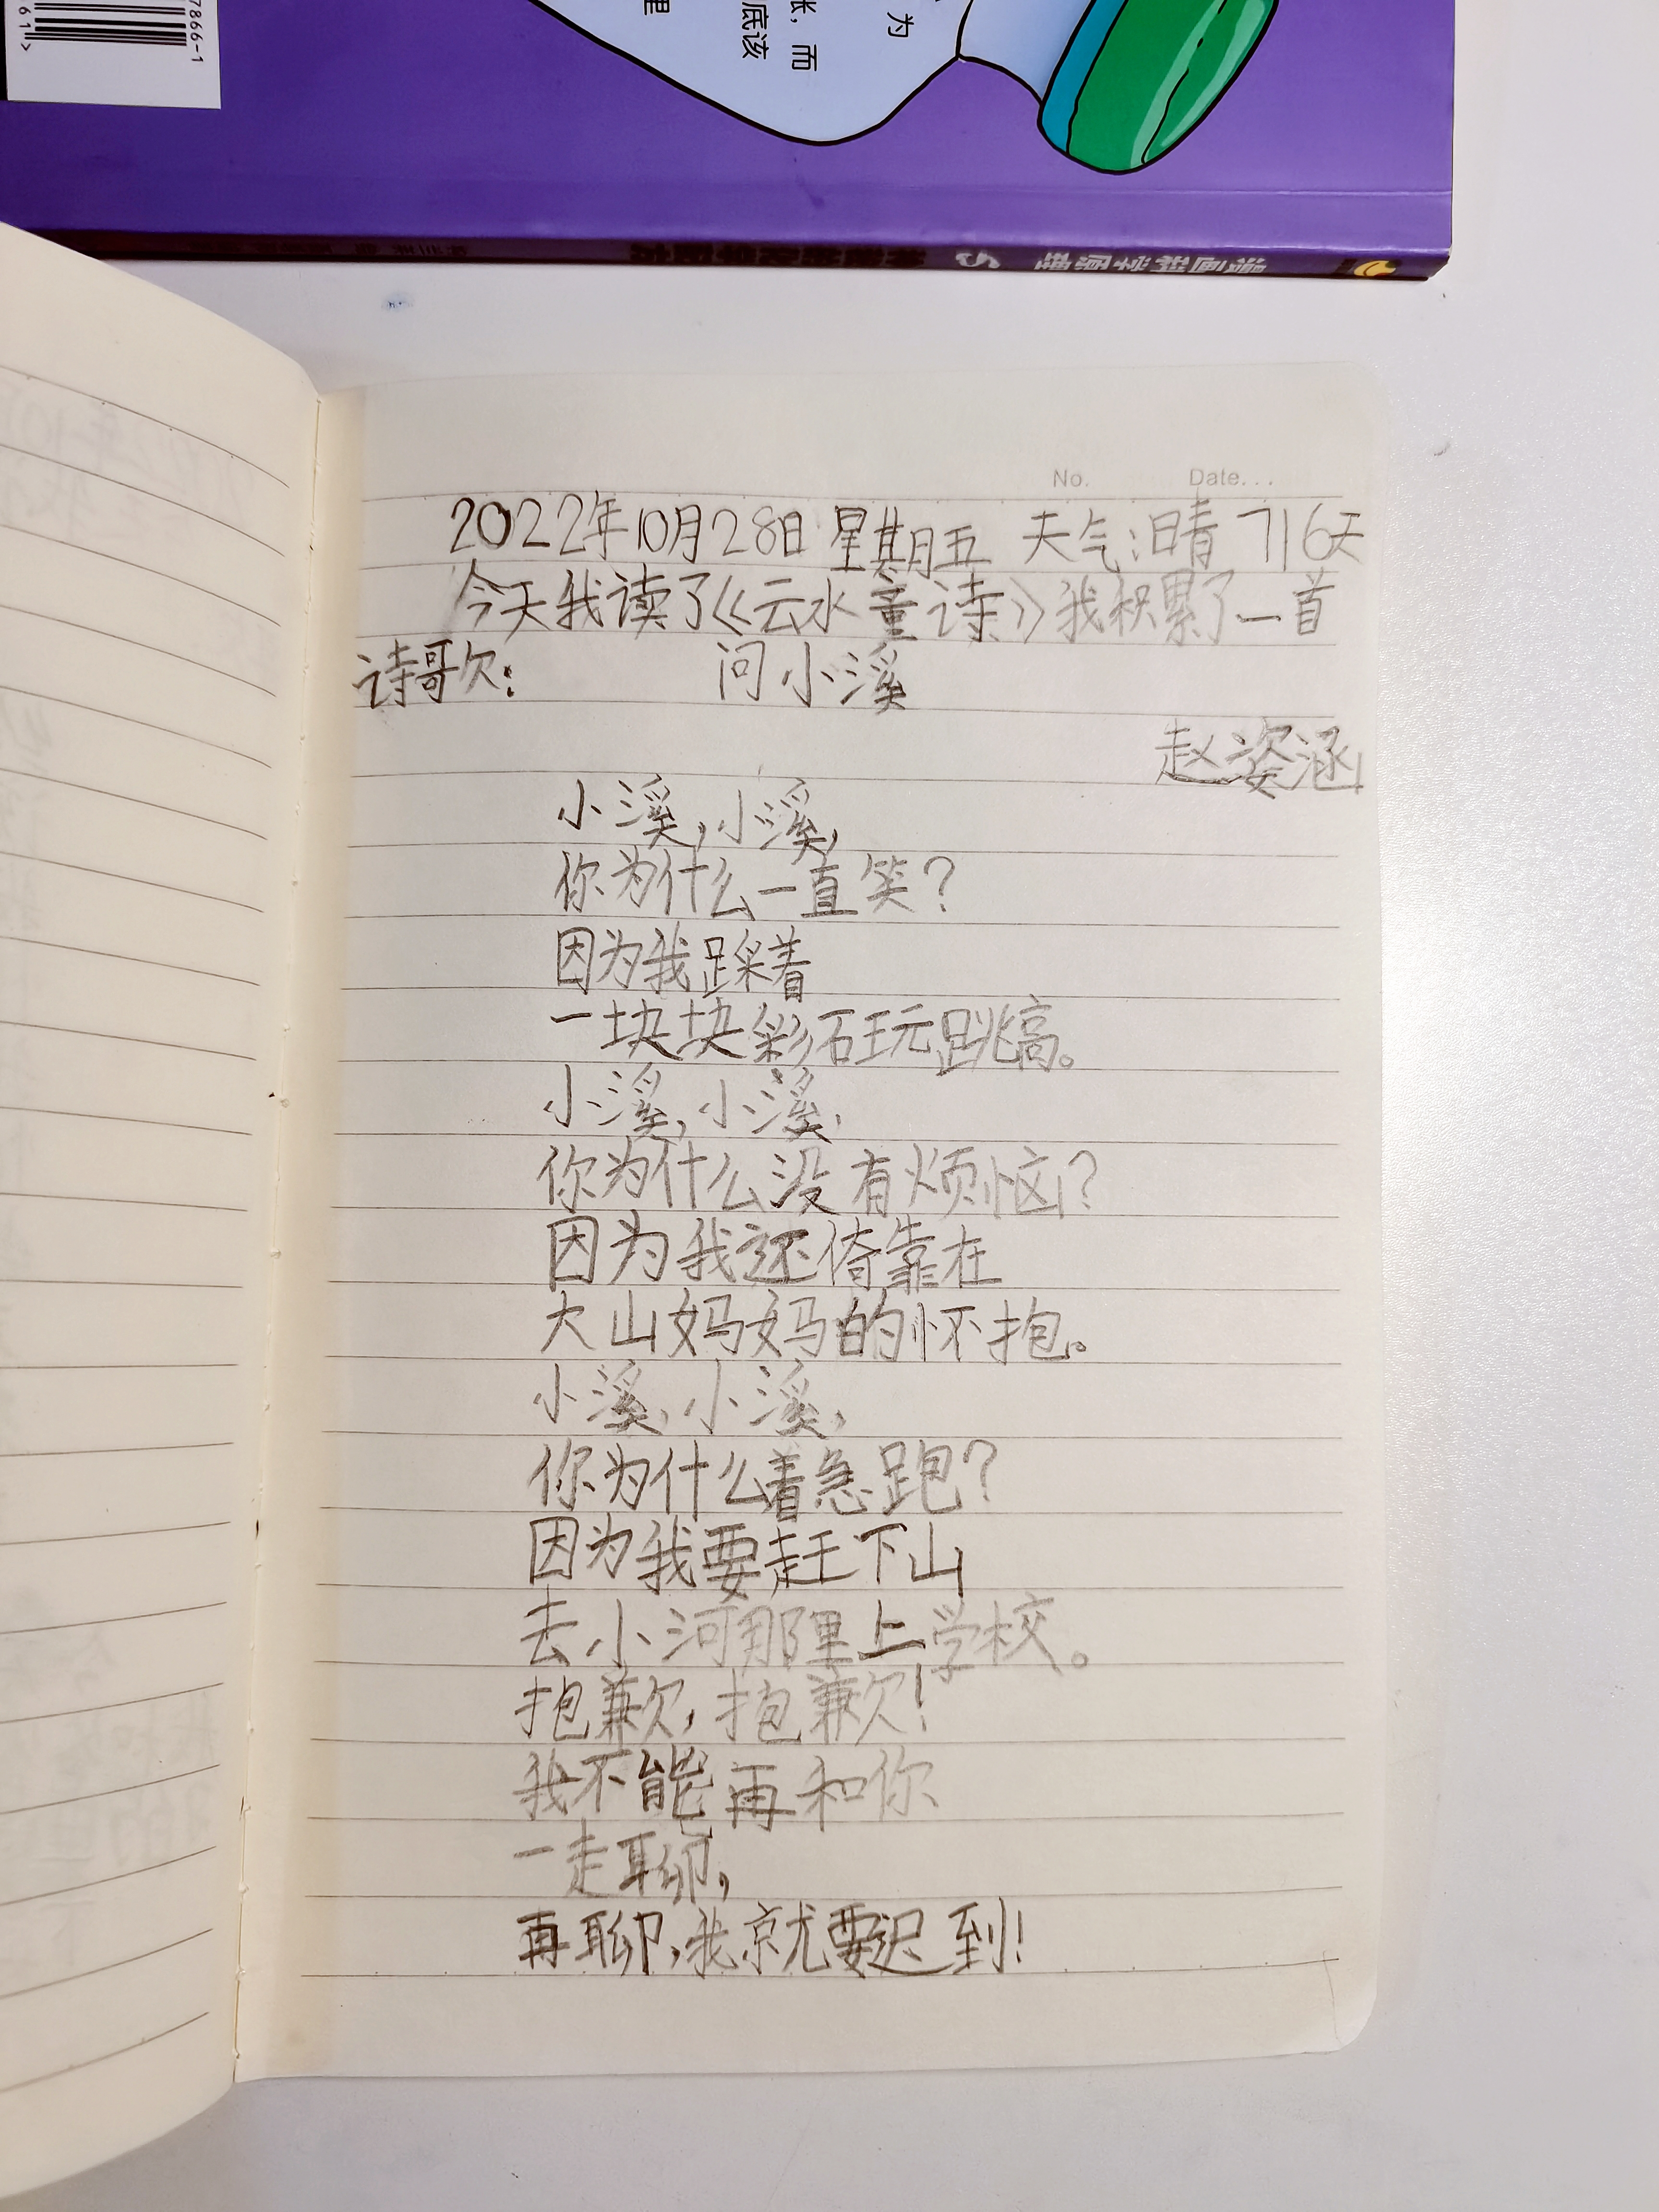 7866-1
61>
里
底该
张，而
为
漫画科学原理
No. Date...
2022年10月28日 星期五 天气:晴 716天
今天我读了《云水童诗》我积累了一首
诗歌: 问小溪
赵姿涵
小溪,小溪,
你为什么一直笑?
因为我踩着
一块块彩石玩跳高。
小溪,小溪,
你为什么没有烦恼?
因为我还倚靠在
大山妈妈的怀抱。
小溪,小溪,
你为什么着急跑?
因为我要赶下山
去小河那里上学校。
抱歉,抱歉!
我不能再和你
一走聊,
再聊,我就要迟到!